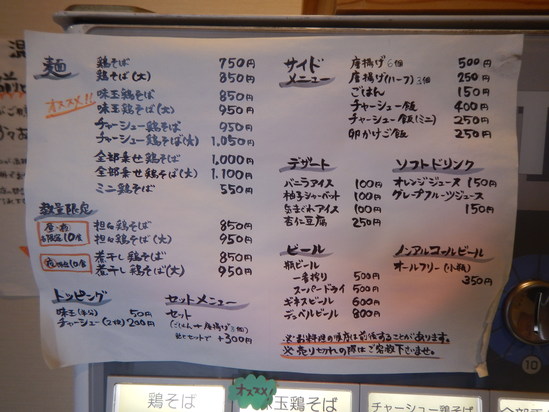 麺
鶏そば 750円
鶏そば(大) 850円
オススメ!!
味玉鶏そば 850円
味玉鶏そば(大) 950円
チャーシュー鶏そば 950円
チャーシュー鶏そば(大) 1,050円
全部乗せ鶏そば 1,000円
全部乗せ鶏そば(大) 1,100円
ミニ鶏そば 550円
数量限定
担々鶏そば 850円
担々鶏そば(大) 950円
煮干し鶏そば 850円
煮干し鶏そば(大) 950円
トッピング
味玉(半分) 50円
チャーシュー(2枚) 200円
セットメニュー
セット
+300円
サイドメニュー
唐揚げ 6個 500円
唐揚げ(ハーフ) 3個 250円
ごはん 150円
チャーシュー飯 400円
チャーシュー飯(ミニ) 250円
卵かけご飯 250円
デザート
バニラアイス 100円
柚子シャーベット 100円
気まぐれアイス 100円
杏仁豆腐 250円
ソフトドリンク
オレンジジュース 150円
グレープフルーツジュース
150円
ビール
瓶ビール
一番搾り 500円
スーパードライ 500円
ギネスビール 600円
デュベルビール 800円
ノンアルコールビール
オールフリー(小瓶)
350円
※お料理の順序は前後することがあります。
※売り切れの際はご容赦下さいませ。
鶏そば
オススメ
味玉鶏そば
チャーシュー鶏そば
10